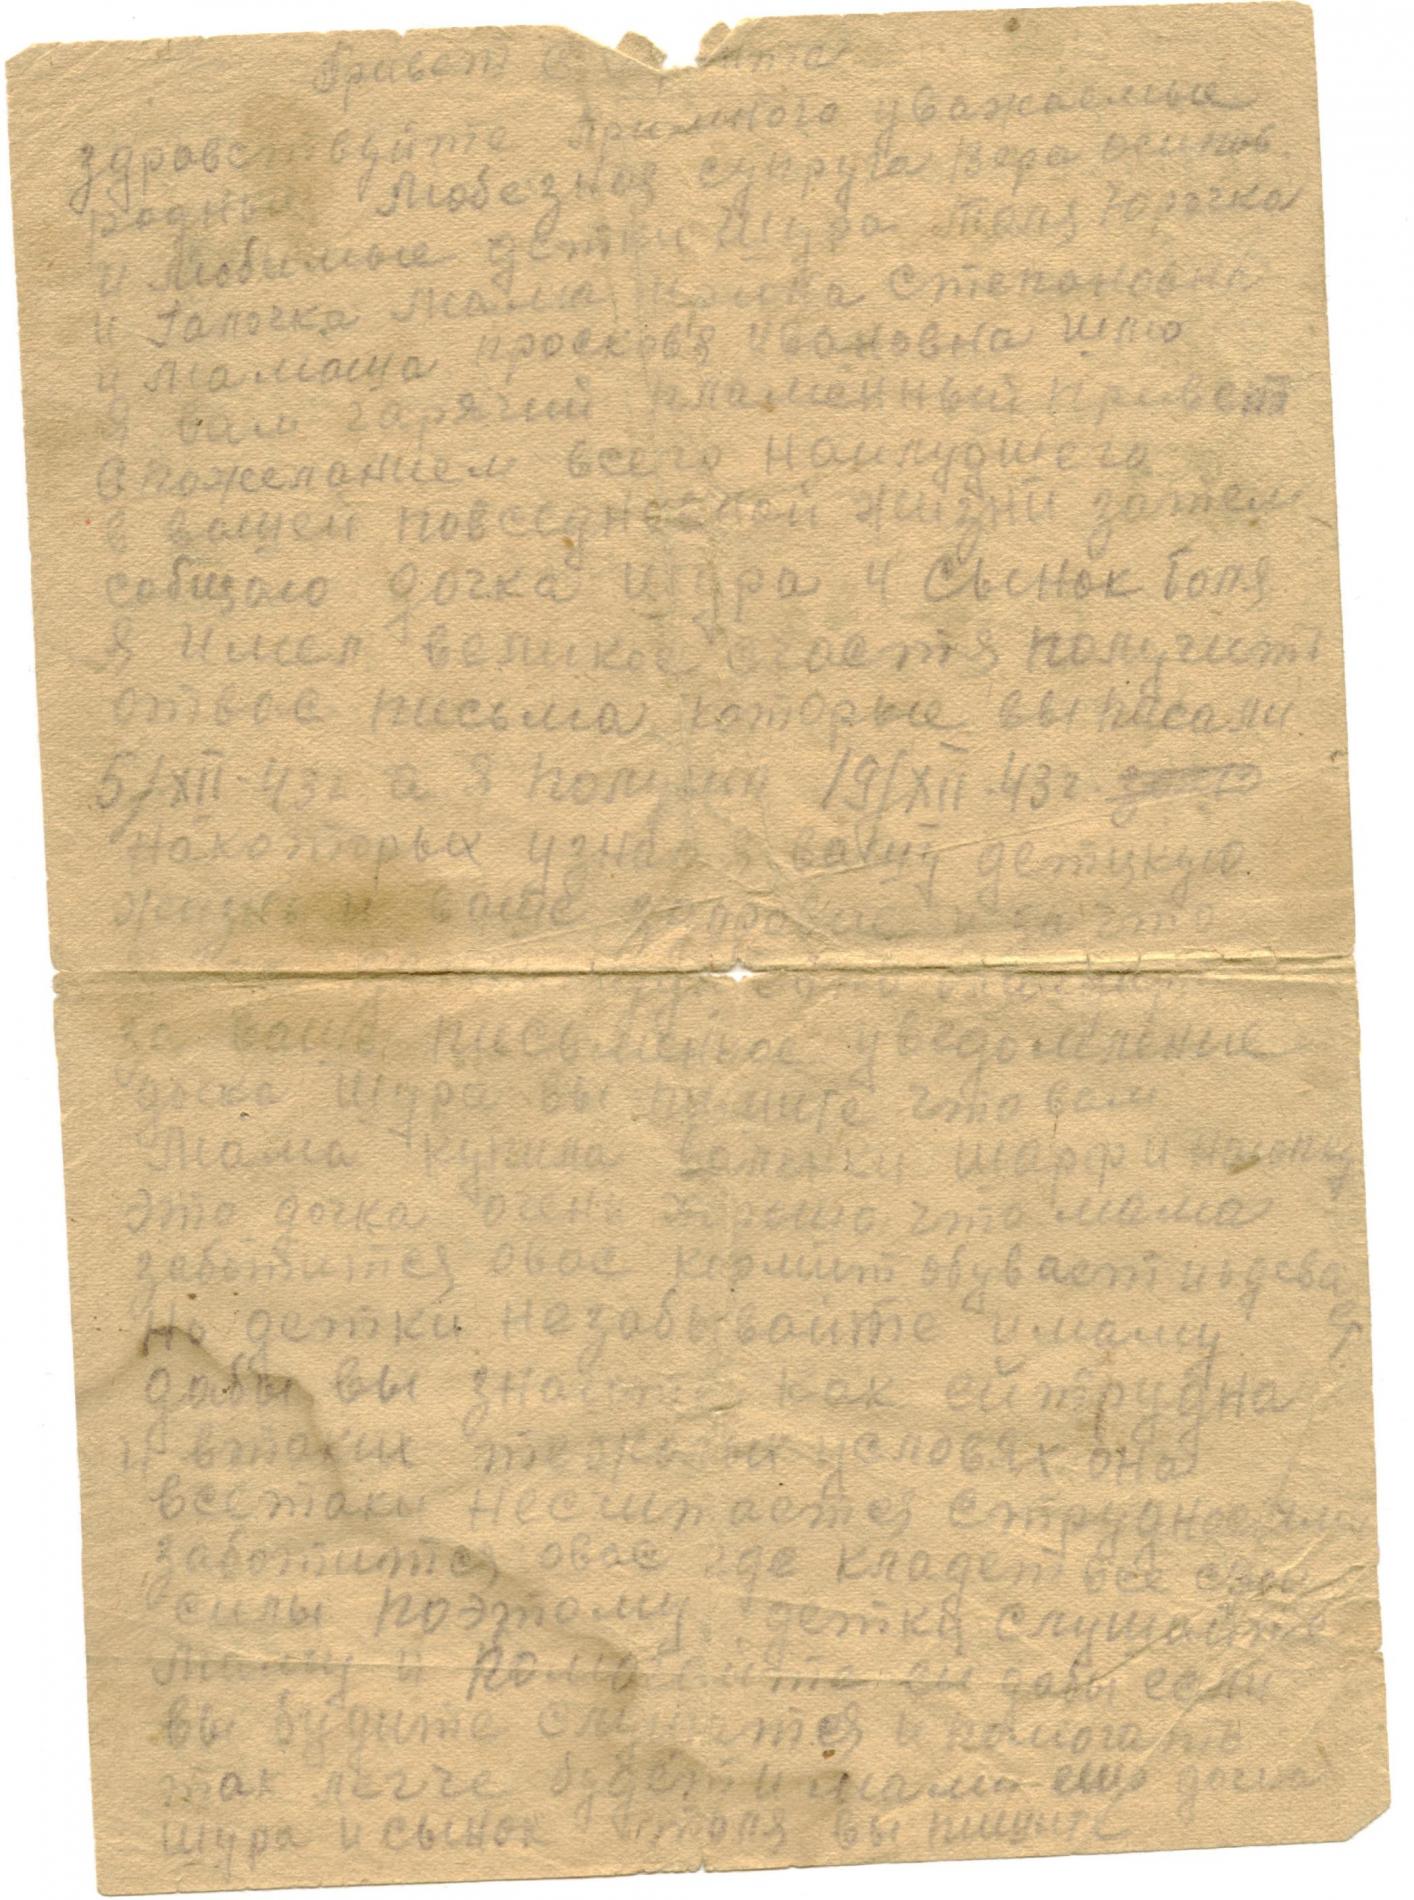 Привет с
здравствуйте примного уважаемые
родные Любезная супруга Вера осипов
и Любимые детки Шура Толя Юрочка
и Галочка Мама Ирина Степановна
и Мамаша просковя ивановна шлю
я вам гарячий пламенный привет
с пожеланием всего наилудшего
в вашей повседневной жизни затем
сабщаю дочка Шура и сынок Толя
я имел великое счастя получит
отвас письма которые вы писали
5/XII-43г. а я получил 19/XII-43г.
накоторых узнал я вашу детцкую
жизнь и ваше здоровие и за что
за ваше письменое уведомление
дочка Шура вы пишите что вам
Мама купила шарф и
это дочка очень хорошо что мама
заботится овас кормит обувает иодева
ет
но детки незабывайте имаму
дабы вы знаите как ей трудна
и втаких тежолых условях она
всетаки несчитается струдностями
заботится овас где кладет все свои
силы поэтому детки слушайте
Маму и помогайте ей дабы если
вы будите слушатся и помогать
так легче будет и маме ещо дочка
Шура и сынок Толя вы пишите